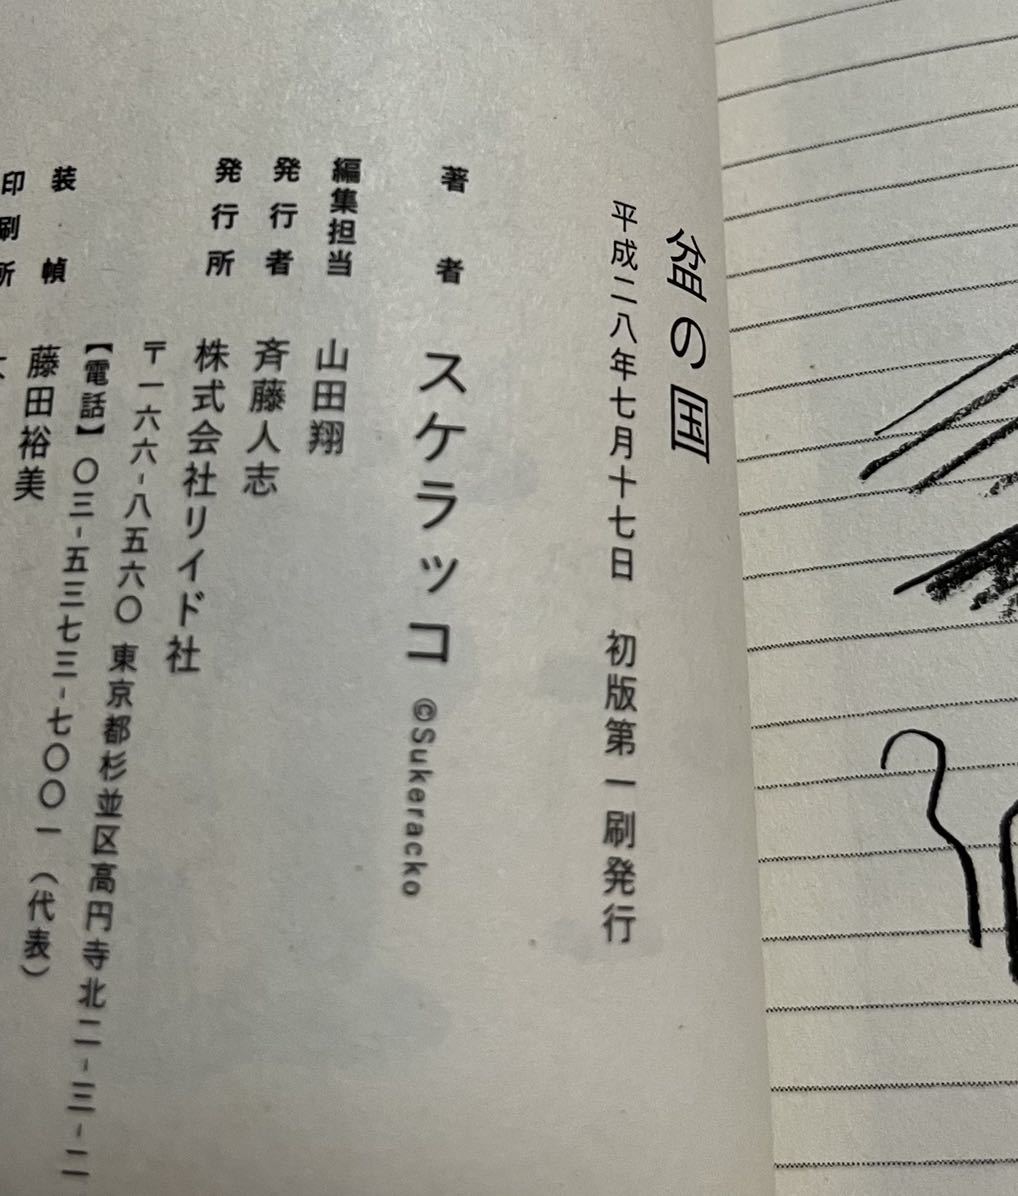 盆の国
平成二八年七月十七日 初版第一刷発行
著者 スケラッコ ©Sukeracko
編集担当 山田翔
発行者 斉藤人志
発行所 株式会社リイド社
〒一六六-八五六〇 東京都杉並区高円寺北二-三-二
【電話】〇三-五三七三-七〇〇一(代表)
装幀 藤田裕美
印刷所